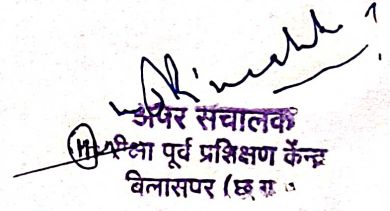 अपर संचालक
परीक्षा पूर्व प्रशिक्षण केन्द्र
बिलासपुर (छ.ग.